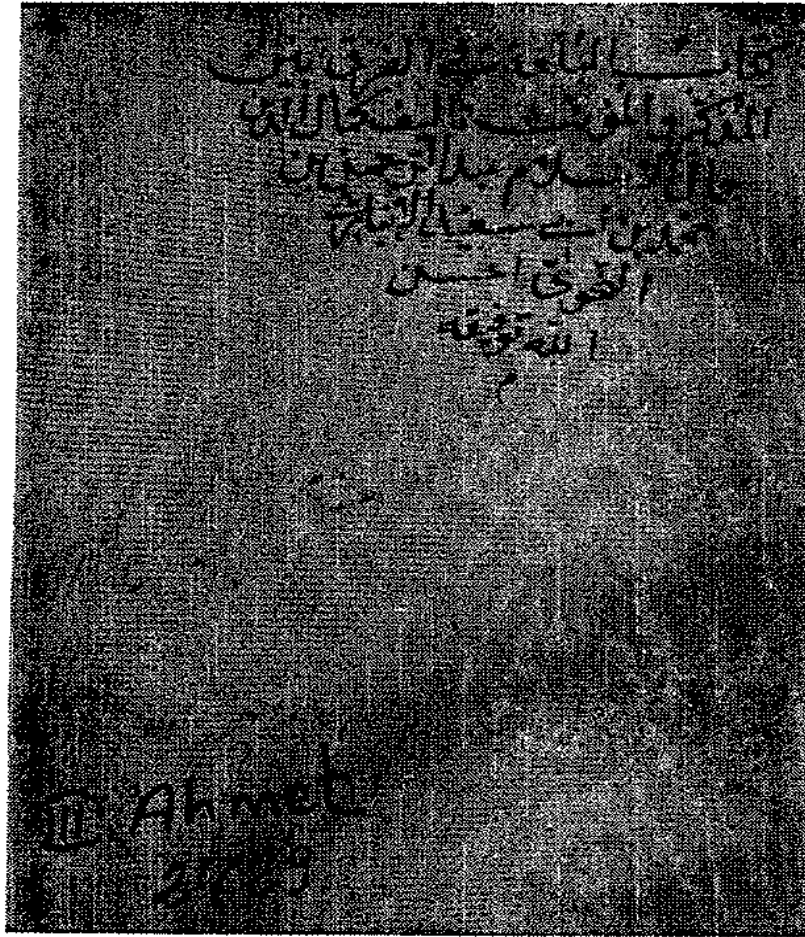 كتاب البلغة في الفرق بين
المذكر والمؤنث تأليف كمال الدين
جمال الاسلام عبد الرحمن بن
محمد بن أبي سعيد الأنباري
النحوي أحسن
الله توفيقه
م
III Ahmet